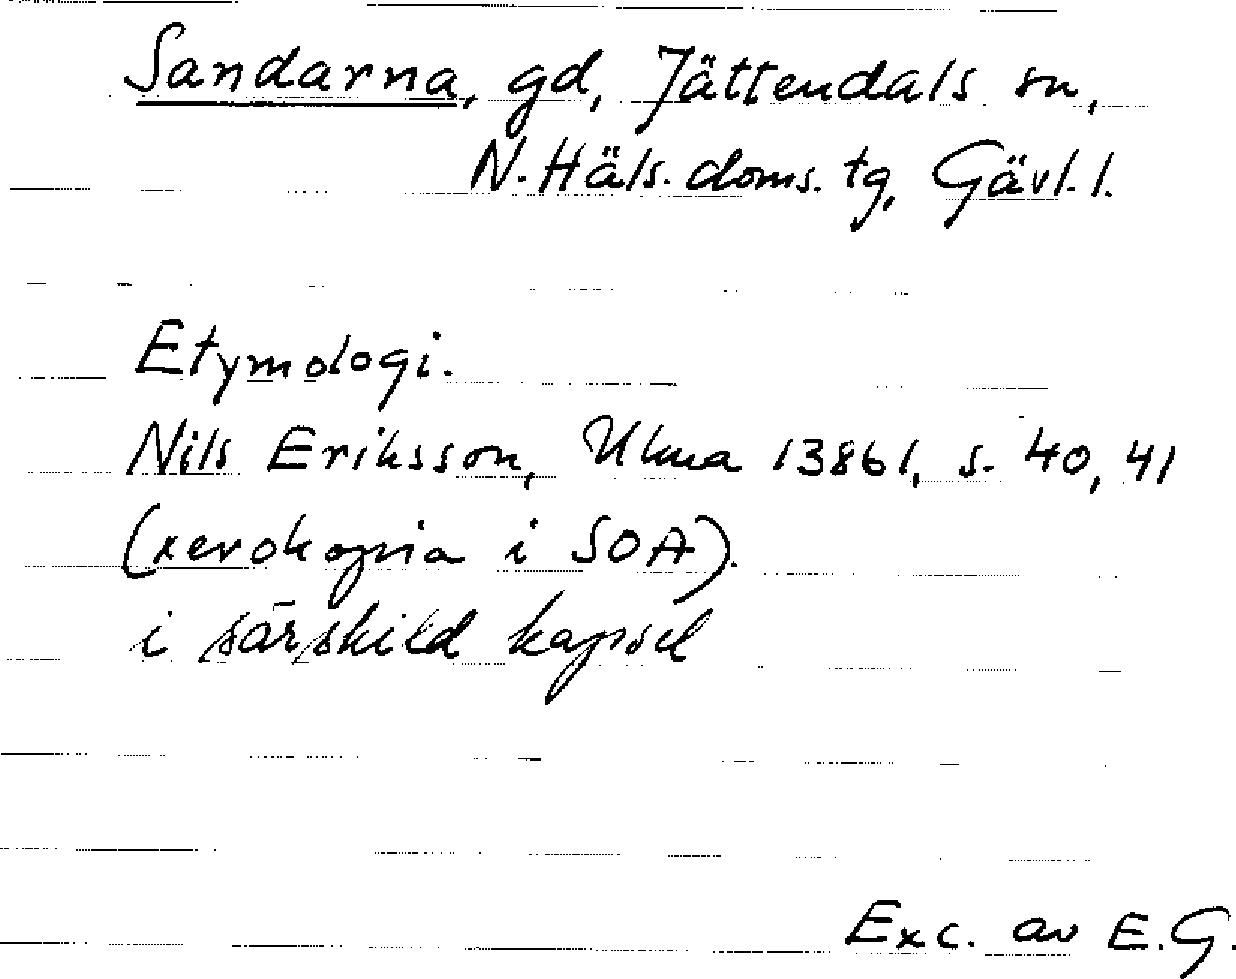 Sandarna, gd, Jättendals sn,
N. Häls. doms. tg, Gävl. l.
Etymologi.
Nils Eriksson, Ulma 13861, s. 40, 41
(xerokopia i SOA).
i särskild kapsel
Exc. av E.G.